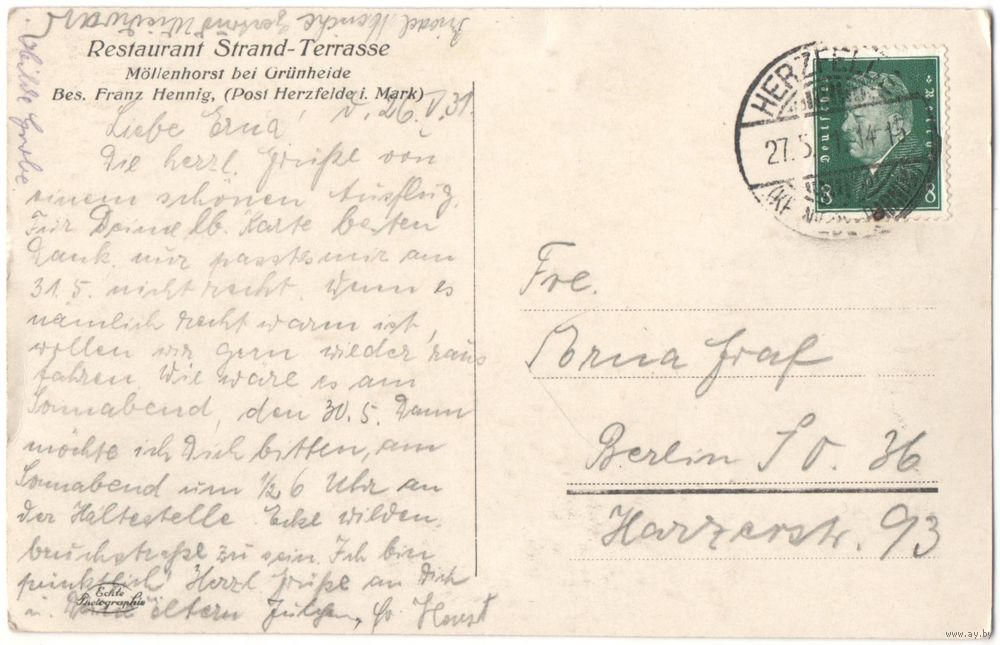 Restaurant Strand-Terrasse
Möllenhorst bei Grünheide
Bes. Franz Hennig, (Post Herzfelde i. Mark)
Liebe Erna! d. 26.V.31.
Die herzl. Grüße von
einem schönen Ausflug.
Für Deine lb. Karte besten
Dank, nur passt es mir am
31.5. nicht recht. Wenn es
nämlich recht warm ist,
wollen wir gern wieder raus
fahren. Wie wäre es am
Sonnabend, den 30.5. Dann
möchte ich Dich bitten, am
Sonnabend um ½6 Uhr an
der Haltestelle Ecke Wilden-
bruchstraße zu sein. Ich bin
pünktlich. Herzl. Grüße an Dich
u. Deine Eltern Horst
Friedel
Hilde
Echte
Photographie
HERZFELDE
27.5. 14-15
Deutsches Reich
8 8
Frl.
Erna Graf
Berlin S O. 36
Harzerstr. 93
www.ay.by